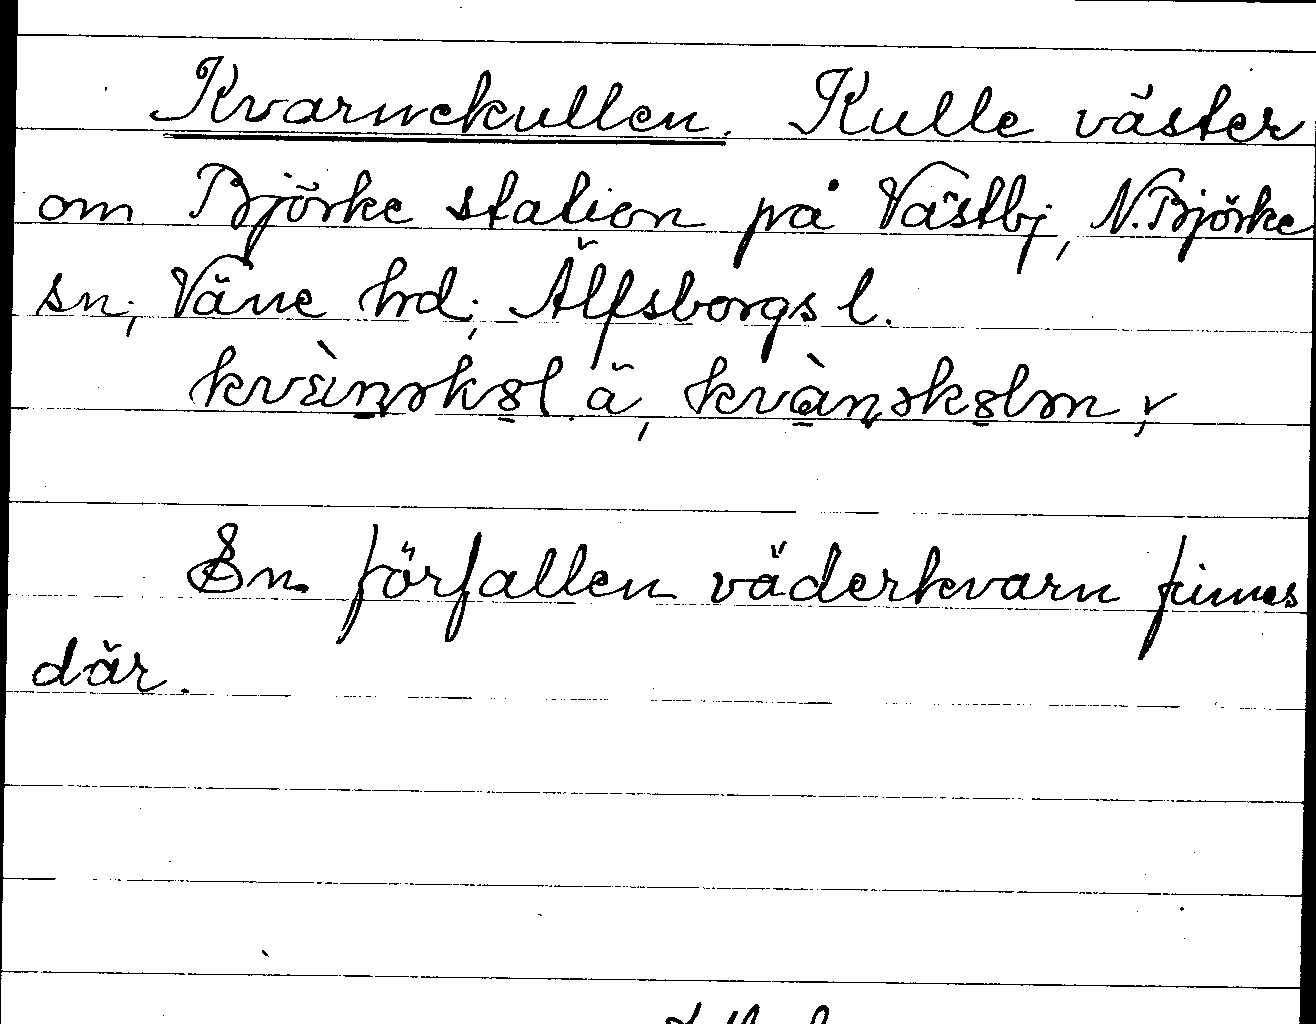 Kvarnekullen. Kulle väster
om Björke station på Västbj, N. Björke
sn; Väne hrd; Älfsborgs l.
ä,
En förfallen väderkvarn finnes
där.